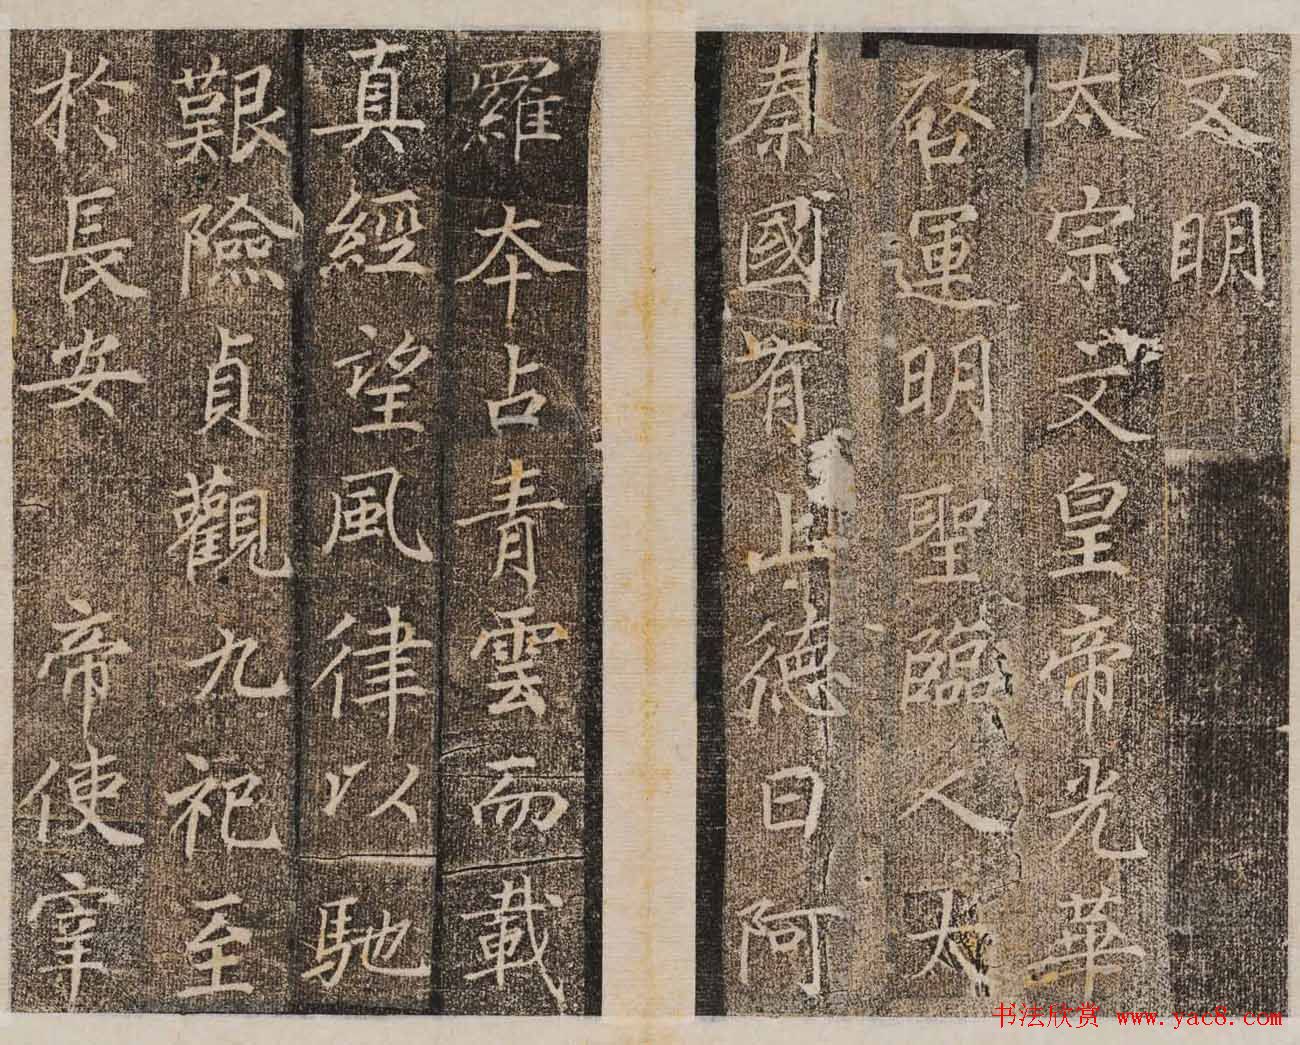 文明
太宗文皇帝光華
啓運明聖臨人大
秦國有上德曰阿
羅本占青雲而載
真經望風律以馳
艱險貞觀九祀至
於長安帝使宰
书法欣赏 www.yac8.com